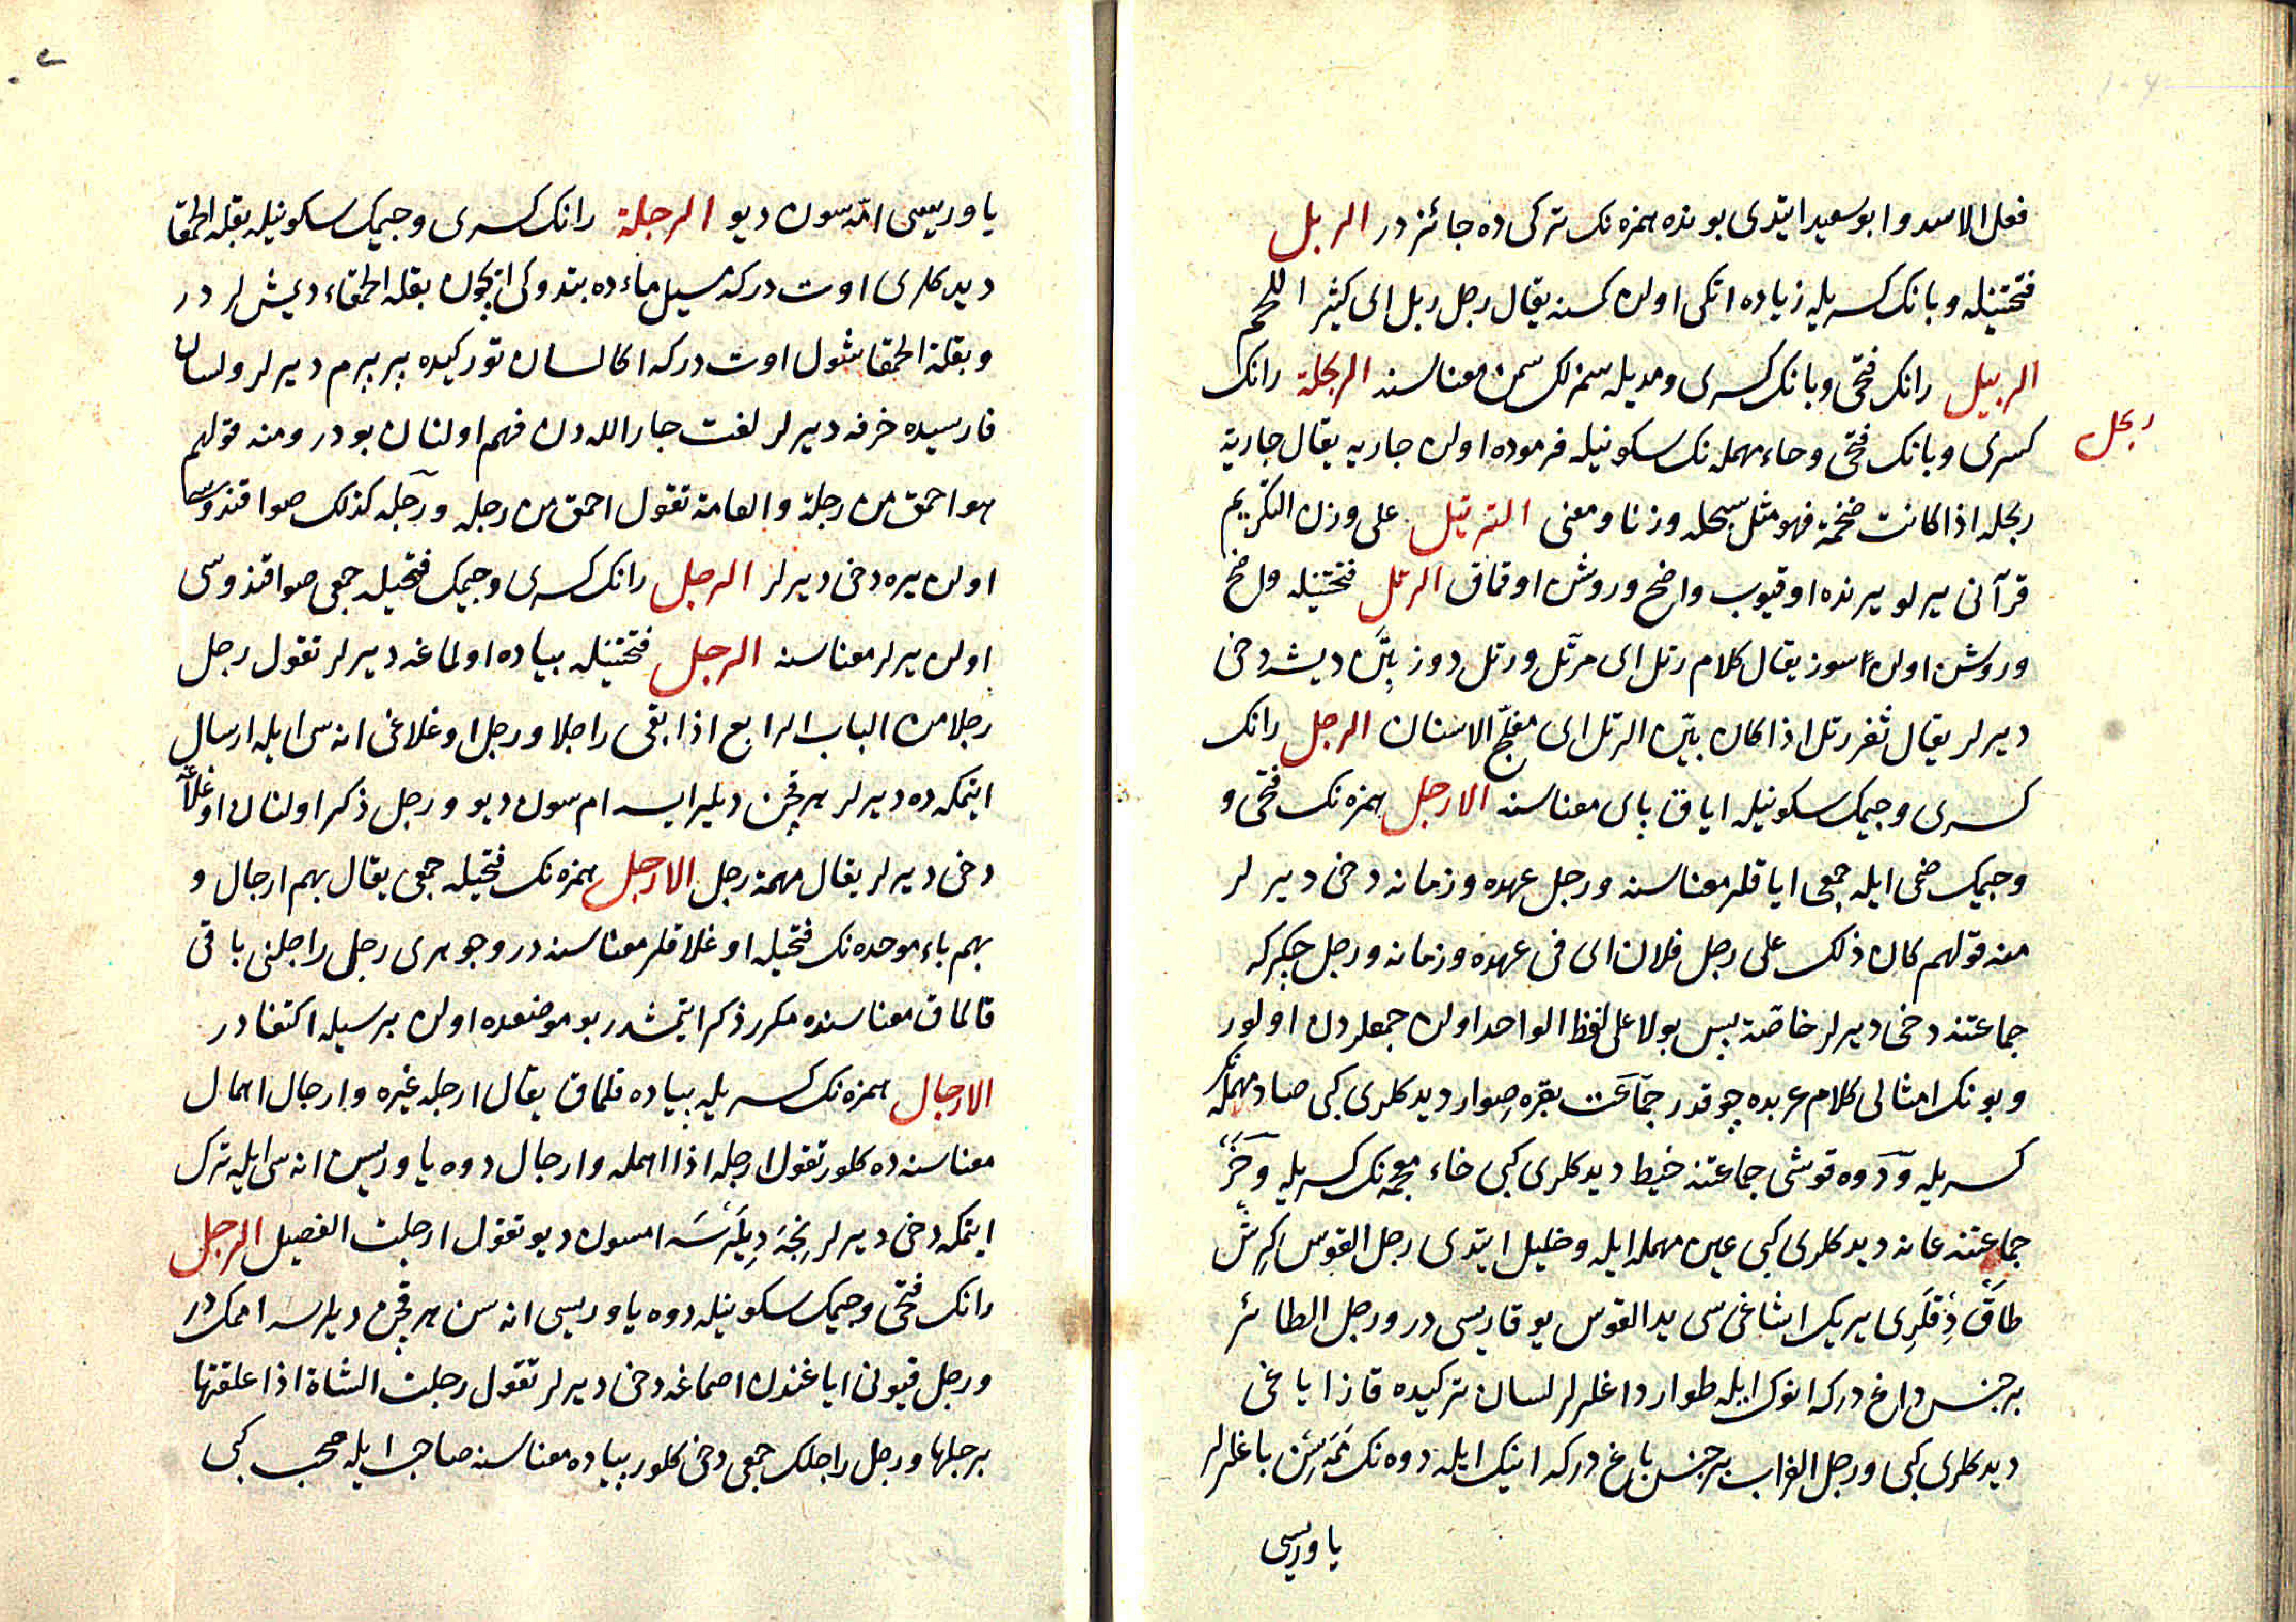 فعل الاسد وابو سعيد ايتدى بونده همزه نك تركى ده جائزدر الربل
فتحتينله وبانك كسريله زياده اتلى اولن كمسنه يقال رجل ربل اى كثير اللحم
الربيل رانك فتحى وبانك كسرى ومديله سمزلك سمن معناسنه الربحلة رانك
ربحل
كسرى وبانك فتحى وحاء مهمله نك سكونيله فرموده اولن جاريه يقال جارية
ربحله اذا كانت ضخمة فهو مثل سبحله وزنا ومعنى الترتيل على وزن التكريم
قرآنى يرلو يرنده اوقيوب واضح وروشن اوقماق الرتل فتحتينله واضح
وروشن اولن سوز يقال كلام رتل اى مرتّل ورتل دوز بتن ديشه دخى
ديرلر يقال ثغر رتل اذا كان بيّن الرتل اى مفلّج الاسنان الرجل رانك
كسرى وجيمك سكونيله اياق پاى معناسنه الارجل همزه نك فتحى و
وجيمك ضمى ايله جمعى اياقلر معناسنه ورجل عهده وزمانه دخى ديرلر
منه قولهم كان ذلك على رجل فلان اى فى عهده وزمانه ورجل چكرگه
جماعتنه دخى ديرلر خاصّة پس بولا على لفظ الواحد اولن جمعلردن اولور
وبونك امثالى كلام عربده چوقدر جماعت بقره صوار ديدكلرى كبى صاد مهمله نك
كسريله ودَوه قوشى جماعتنه خيط ديدكلرى كبى خاء معجمه نك كسريله وخر
جماعتنه عانه ديدكلرى كبى عين مهمله ايله وخليل ايتدى رجل القوس كرش
طاقدقلرى يريك اشاغى سى يد القوس يوقاريسى در ورجل الطائر
بر جنس داغ دركه انوك ايله طوار داغلرلر لسان تركيده قاز اياغى
ديدكلرى كبى ورجل الغراب بر جنس باغ دركه انيك ايله دوه نك ممه سن باغلرلر
ياوريسى
ياوريسى امّه سون ديو الرجلة رانك كسرى وجيمك سكونيله بقلة الحمقا
ديدكلرى اوت دركه مسيل ماءده بتدوكى ايچون بقلة الحمقاء ديمشلردر
وبقلة الحمقا شول اوت دركه اكا لسان توركيده پرپرم ديرلر ولسان
فارسيده خرفه ديرلر لغت جار الله دن فهم اولنان بودر ومنه قولهم
هو احمق من رجلة والعامة تقول احمق من رجله ورجله كذلك صو اقندوسى
اولن يره دخى ديرلر الرجل رانك كسرى وجيمك فتحيله جمعى صو اقندوسى
اولن يرلر معناسنه الرجل فتحتينله پياده اولماغه ديرلر تقول رجل
رجلا من الباب الرابع اذا بقى راجلا ورجل اوغلاغى انه سى ايله ارسال
ايتمكه ده ديرلر هر قچن ديلر ايسه امسون ديو ورجل ذكر اولنان اوغلاغه
دخى ديرلر يقال بهمة رجل الارجل همزه نك فتحيله جمعى يقال بهم ارجال و
بهم باء موحده نك فتحيله اوغلاقلر معناسنه در وجوهرى رجل راجلنى باقى
قالماق معناسنده مكرر ذكر ايتمشدر بو موضعده اولن برسيله اكتفادر
الارجال همزه نك كسريله پياده قلماق يقال ارجله غيره وارجال اهمال
معناسنه ده كلور تقول ارجله اذا اهمله وارجال دوه ياوريسن انه سى ايله ترك
ايتمكه دخى ديرلر نجه ديلرسه امسون ديو تقول ارجلت الفصيل الرجل
رانك فتحى وجيمك سكونيله دوه ياوريسى انه سن هر قچن ديلرسه اممكدر
ورجل قيونى اياغندن اصماغه دخى ديرلر تقول رجلت الشاة اذا علقتها
برجلها ورجل راجلك جمعى دخى كلور پياده معناسنه صاحب ايله صحب كبى